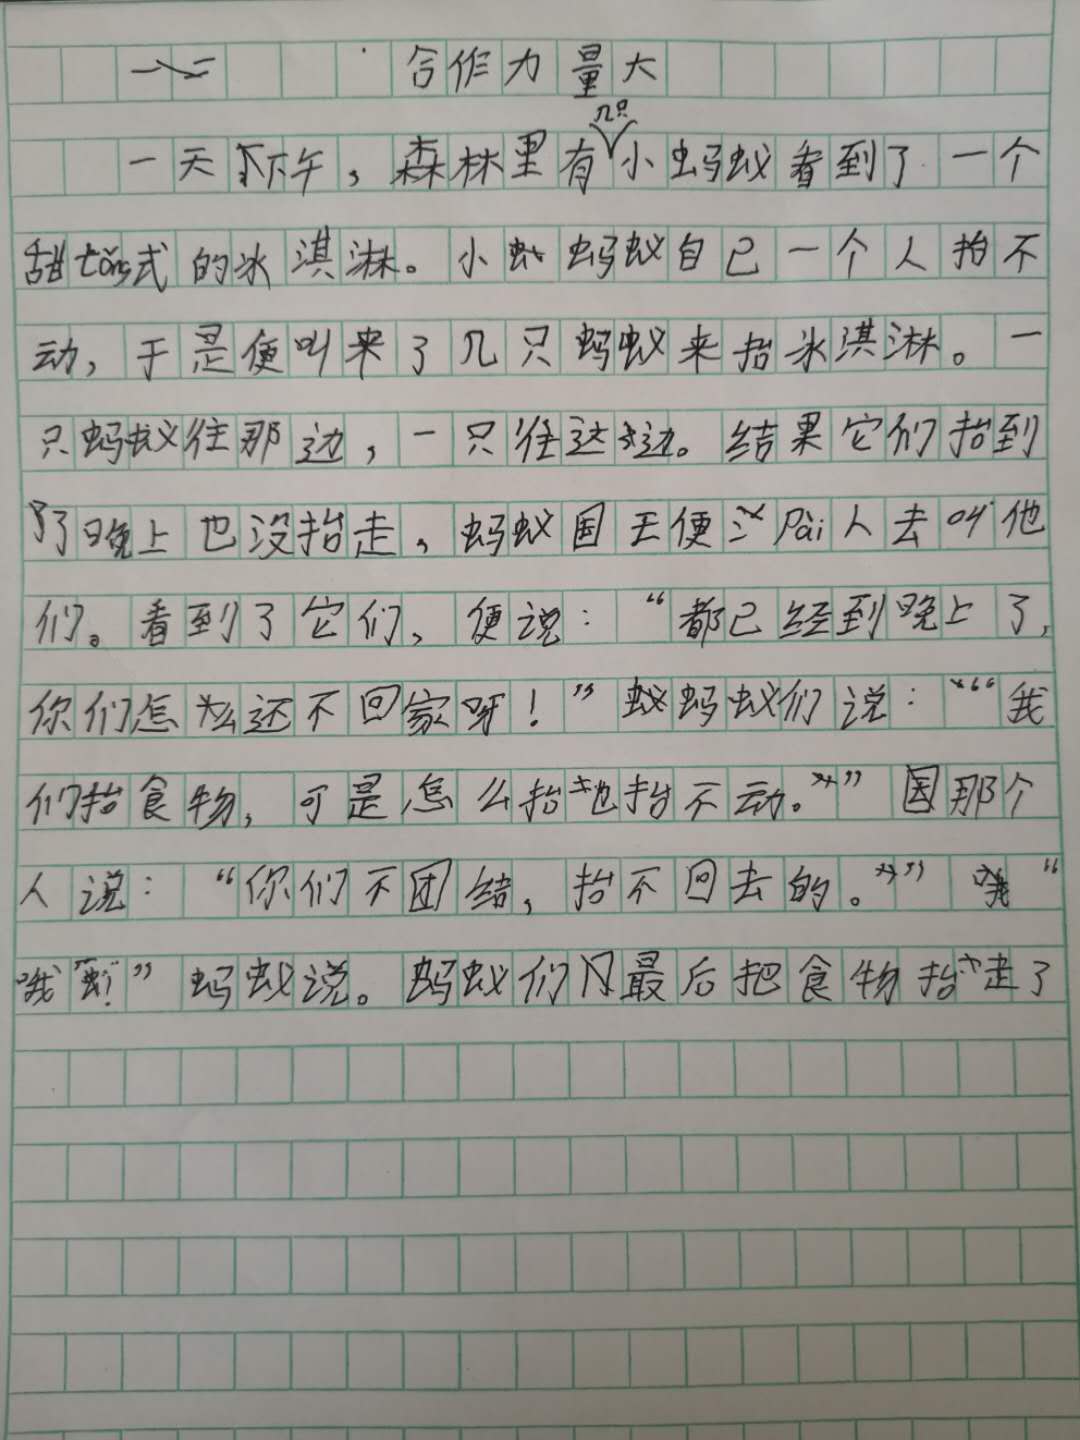 合作力量大
一天下午，森林里有几只小蚂蚁看到了一个
甜tǒng式的冰淇淋。小蚂蚁自己一个人抬不
动，于是便叫来了几只蚂蚁来抬冰淇淋。一
只蚂蚁往那边，一只往这边。结果它们抬到
了晚上也没抬走，蚂蚁国王便Pài人去叫他
们。看到了它们，便说：“都已经到晚上了，
你们怎么还不回家呀！”蚂蚁们说：“我
们抬食物，可是怎么抬也抬不动。”那个
人说：“你们不团结，抬不回去的。”“
哦！”蚂蚁说。蚂蚁们最后把食物抬走了